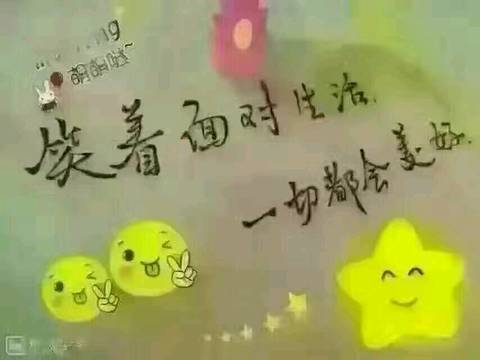 萌萌哒~
笑着面对生活.
一切都会美好.